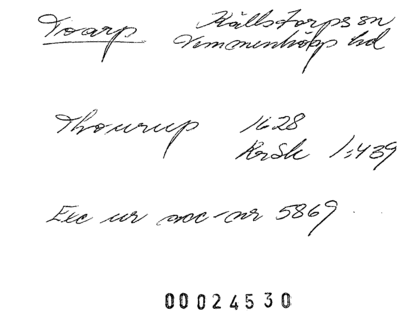 Toarp Källstorps sn
Vemmenhögs hd
Thourup 1628
KrSk 1:439
Exc ur acc-nr 5869
00024530